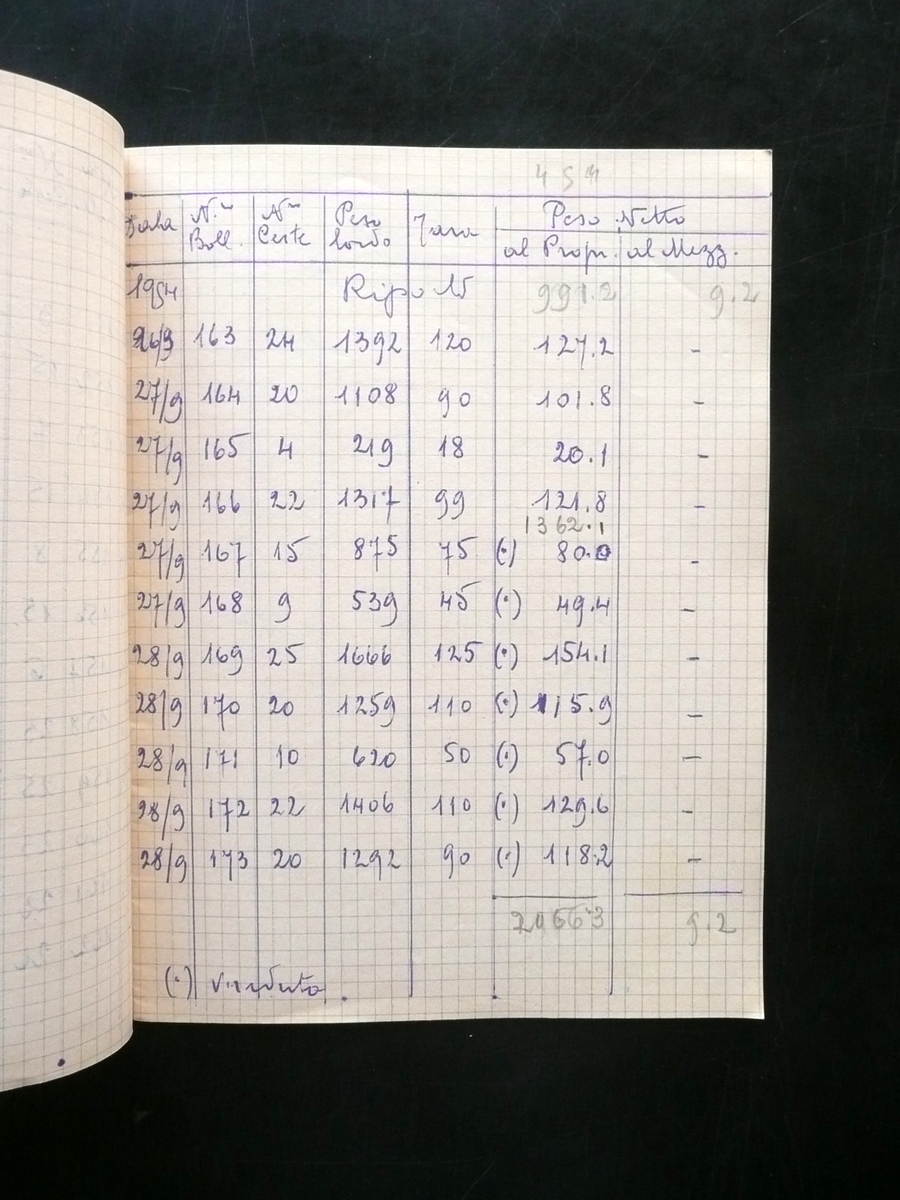 Peso Netto
Data N.ro Boll. N.ro Ceste Peso lordo Tara al Propr. al Mezz.
1954 Ripo 15 991.2 9.2
26/9 163 24 1392 120 127.2 –
27/9 164 20 1108 90 101.8 –
27/9 165 4 219 18 20.1 –
27/9 166 22 1317 99 121.8 –
1362.1
27/9 167 15 875 75 (·) 80.0 –
27/9 168 9 539 45 (·) 49.4 –
28/9 169 25 1666 125 (·) 154.1 –
28/9 170 20 1259 110 (·) 115.9 –
28/9 171 10 620 50 (·) 57.0 –
28/9 172 22 1406 110 (·) 129.6 –
28/9 173 20 1292 90 (·) 118.2 –
9.2
(·) Venduto.